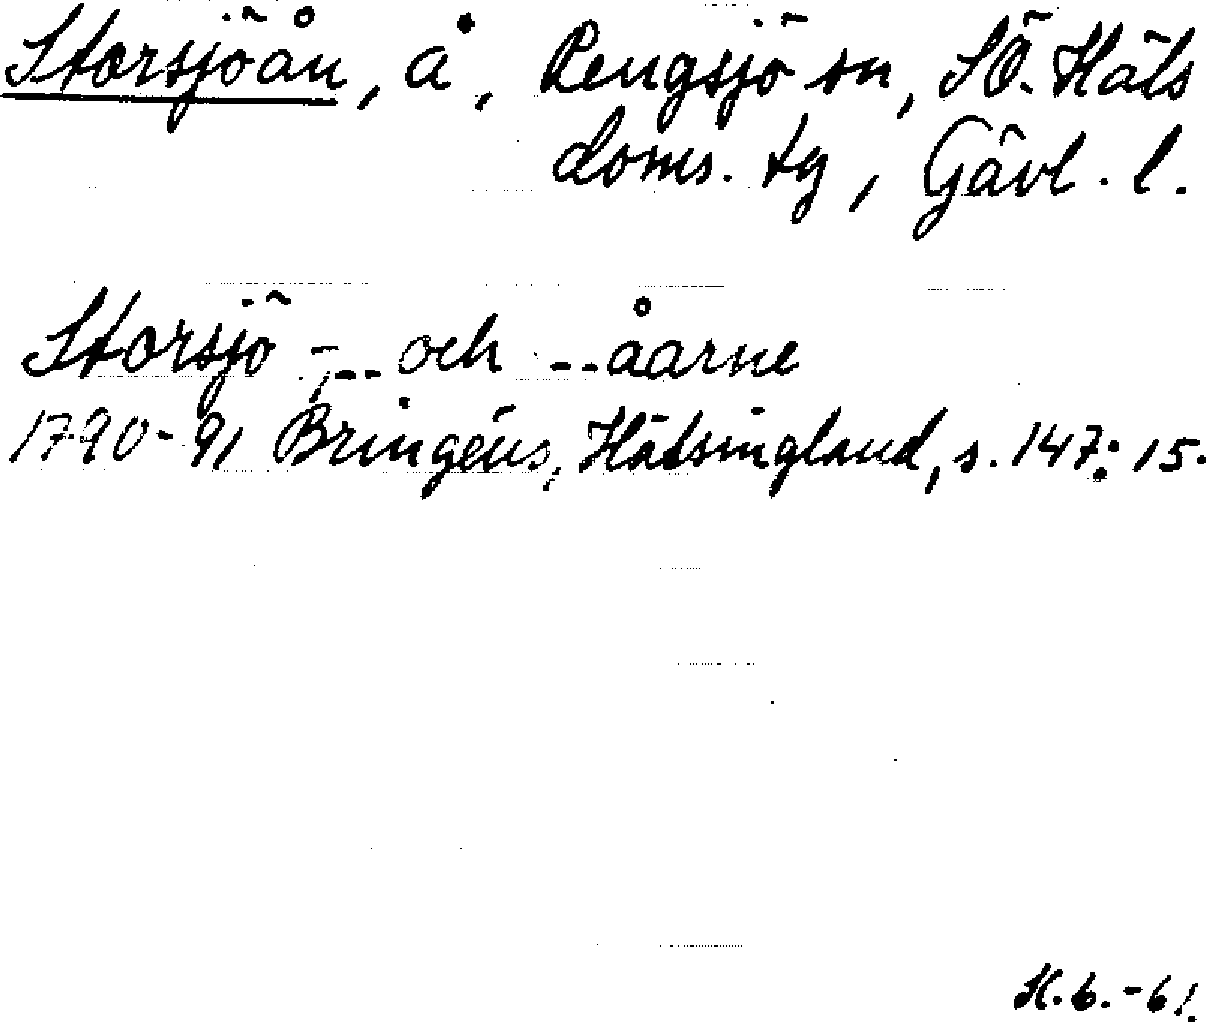 Storsjöån, å, Rengsjö sn, SÖ. Häls
doms. tg, Gävl. l.
Storsjö -, -- och -- åarne
1790-91 Bringéus, Hälsingland, s. 147: 15.
K.b. -61.